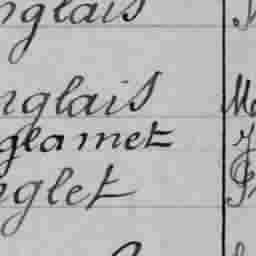 nglais
nglais Ma
glamet
nglet